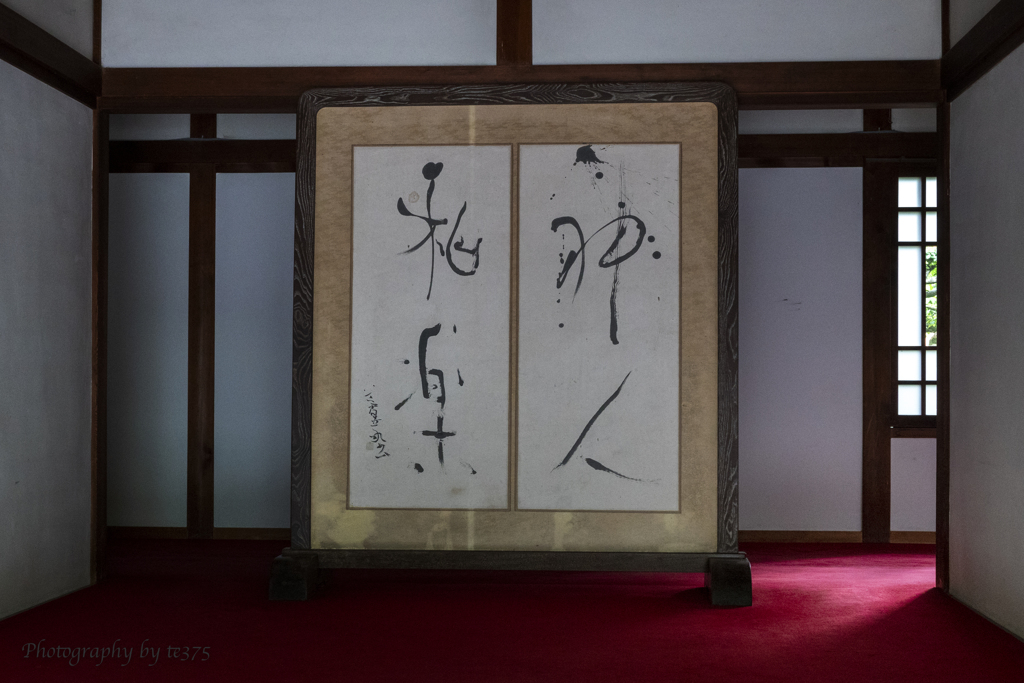 神人
和楽
Photography by te375